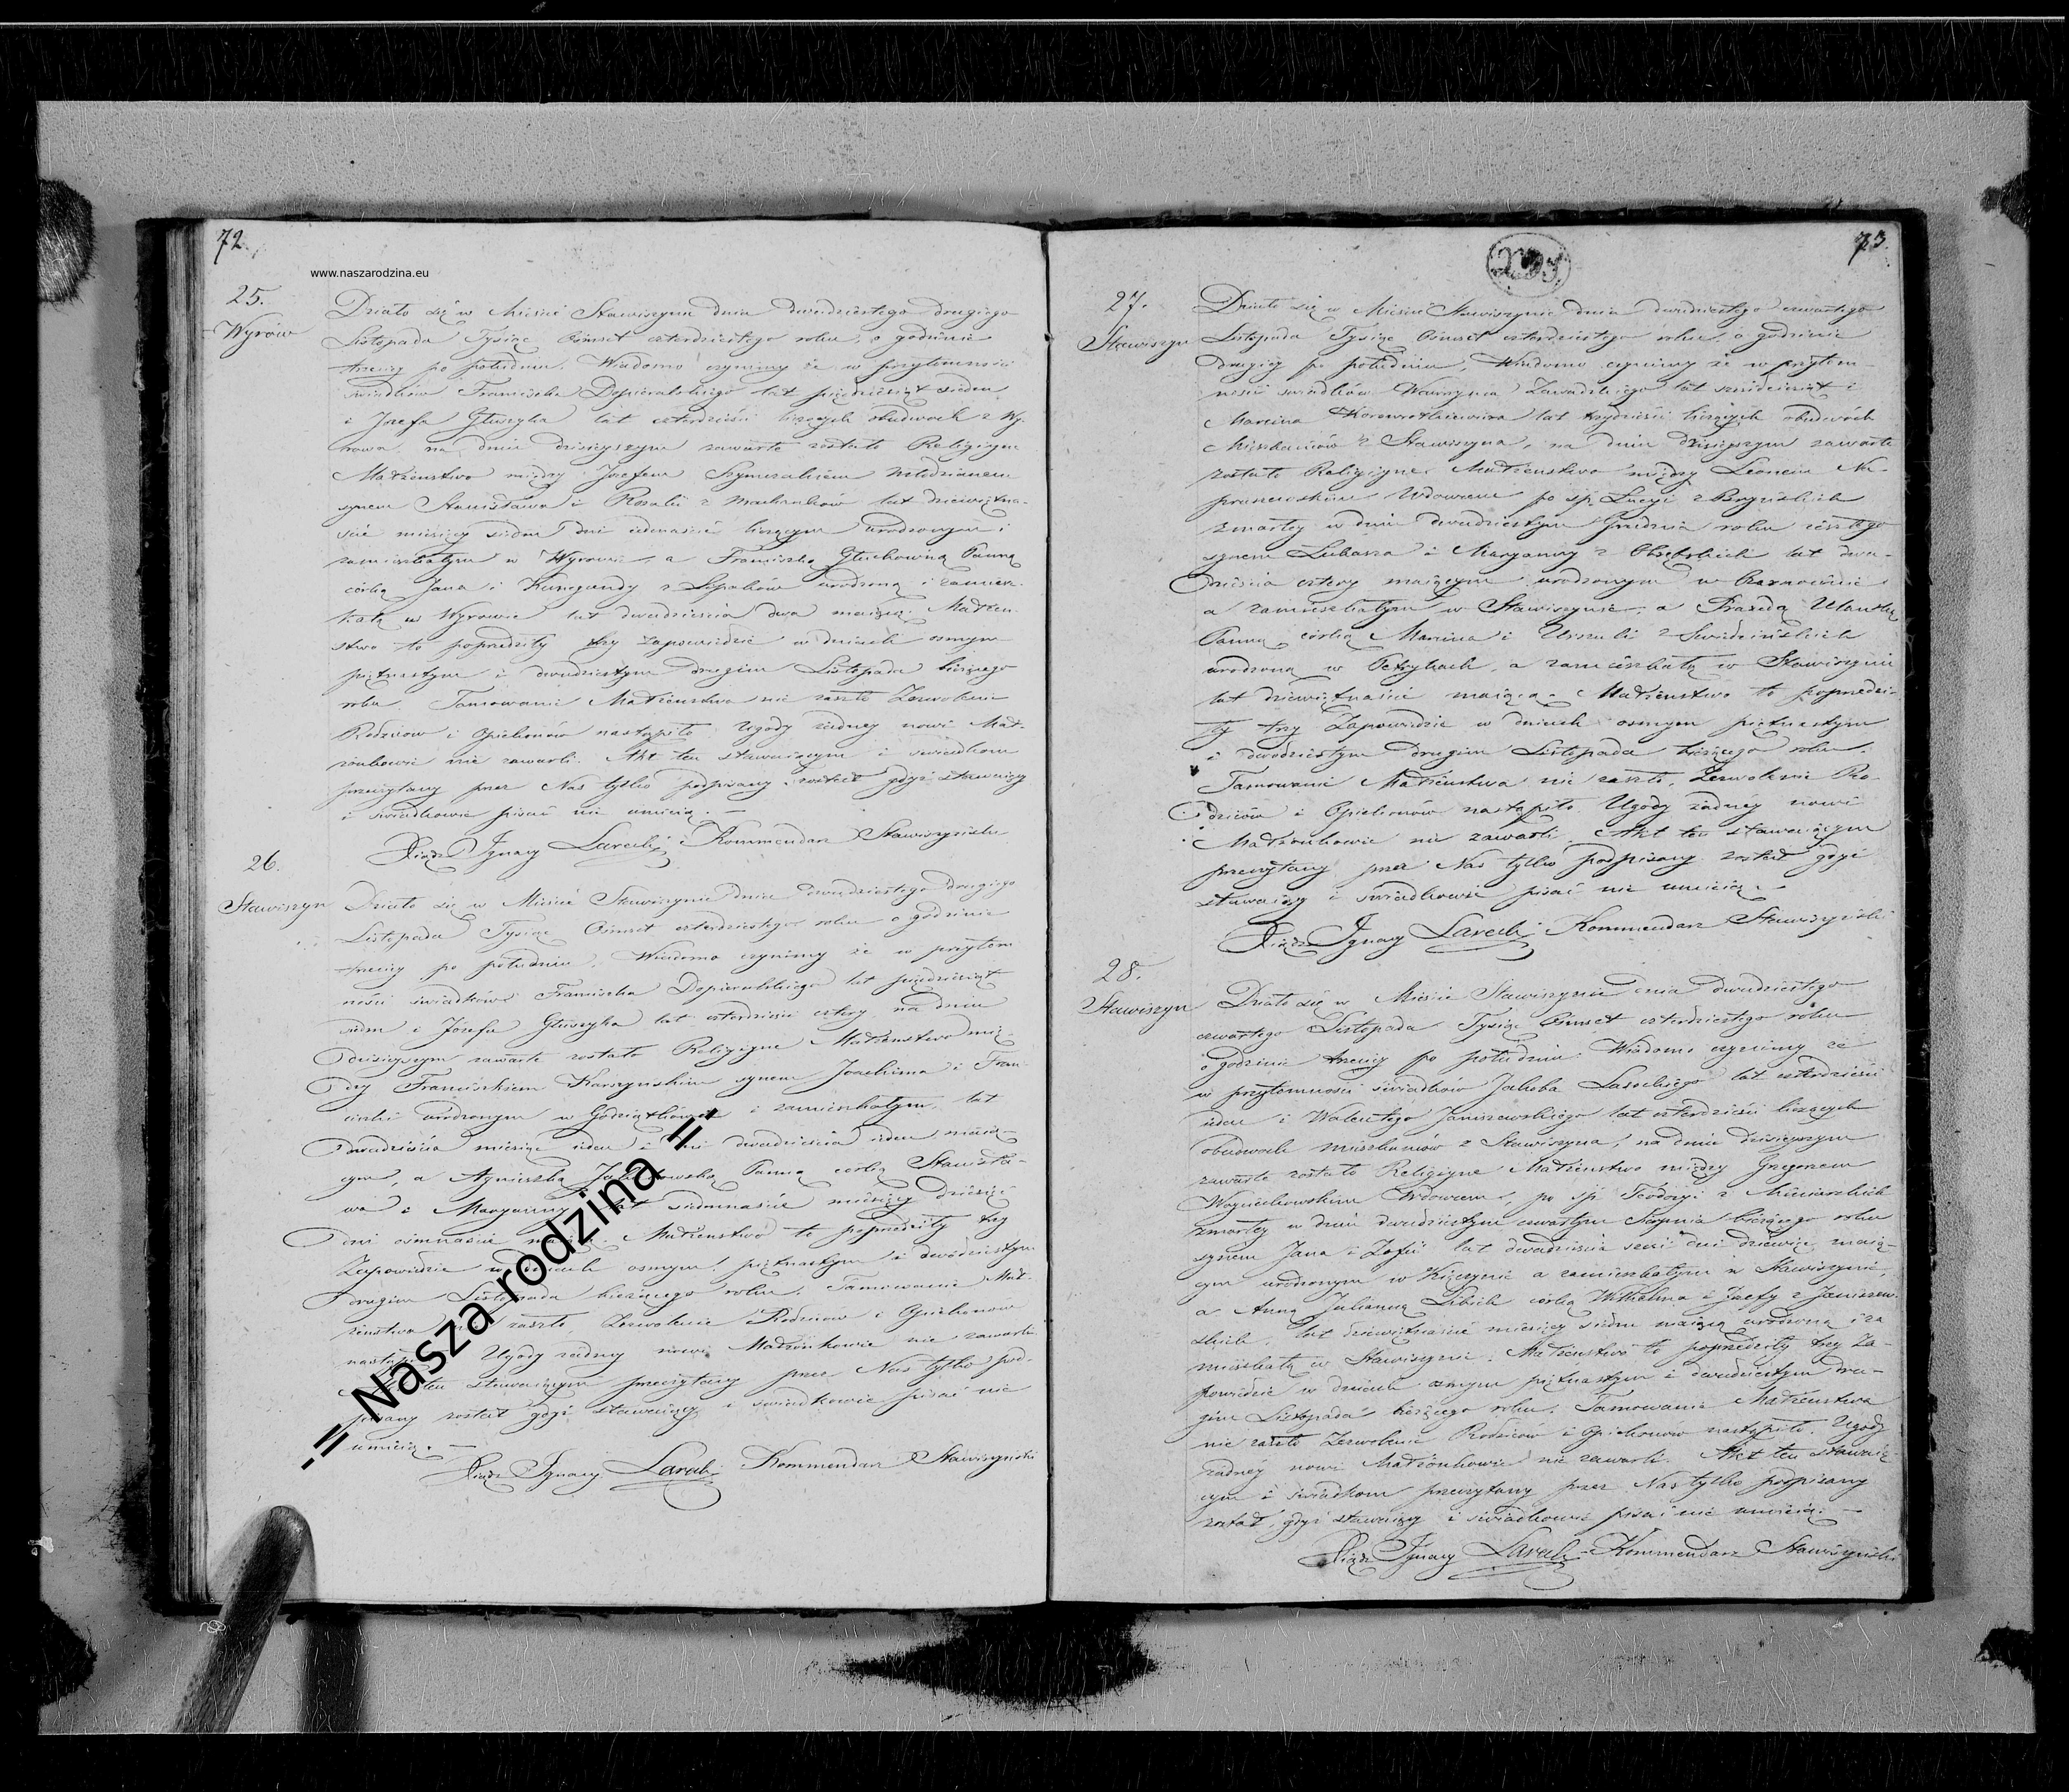 72.
www.naszarodzina.eu
25.
Wyrów
Działo się w Mieście Stawiszynie dnia dwudziestego drugiego
Listopada Tysiąc Ośmset czterdziestego roku, o godzinie
trzeciey po południu. Wiadomo czynimy że w przytomności
świadków Franciszka Dopieralskiego lat piędziesiąt siedem
i Jozefa Głuszyka lat czterdzieści liczących obudwoch z Wy-
rowa, na dniu dzisieyszym zawarte zostało Religiyne
Małżenstwo między Jozefem młodzianem
synem Stanisława i Rozalii z lat dziewiętna-
scie miesięcy siedm dni liczącym urodzonym i
zamieszkałym w Wyrowie, a Franciszką Głuchowną Panną
córką Jana i Kunegundy z urodzoną i zamiesz-
kałą w Wyrowie lat dwadzieścia dwa maiącą. Małżen-
stwo to poprzedziły trzy zapowiedzie w dniach osmym
piętnastym i dwudziestym drugim Listopada bieżącego
roku. Tamowanie Małżeństwa nie zaszło Zezwolenie
Rodziców i Opiekunów nastąpiło. Ugody żadney nowi Mał-
żonkowie nie zawarli. Akt ten stawaiącym i świadkom
przeczytany przez Nas tylko podpisany został gdyż stawaiący
i świadkowie pisać nie umieią. —
Xiądz Ignacy Kommendarz Stawiszyński
26.
Stawiszyn
Działo się w Mieście Stawiszynie dnia dwudziestego drugiego
Listopada Tysiąc Ośmset czterdziestego roku o godzinie
trzeciey po południu. Wiadomo czynimy że w przytom
ności świadków Franciszka Dopieralskiego lat piędziesiąt
siedm i Jozefa Głuszyka lat czterdzieści cztery, na dniu
dzisieyszym zawarte zostało Religiyne Małżenstwo mię-
dzy Franciszkiem synem Joachima i Fran
ciszki urodzonym w i zamieszkałym, lat
dwadzieścia miesiąc ieden i dni dwadzieścia ieden maią-
cym, a Agnieszką Panną córką Stanisła-
wa i Maryanny lat siedmnaście miesięcy dziesięć
dni ośmnaście maiącą. Małżenstwo to poprzedziły trzy
Zapowiedzie w dniach osmym, piętnastym i dwudziestym
drugim Listopada bieżącego roku. Tamowanie Mał-
żeństwa nie zaszło, Zezwolenie Rodziców i Opiekunów
nastąpiło Ugody żadney nowi Małżonkowie nie zawarli.
Akt ten stawaiącym przeczytany przez Nas tylko pod-
pisany został gdyż stawaiący i świadkowie pisać nie
umieią. —
Xiądz Ignacy Kommendarz Stawiszyński
-= Nasza rodzina =-
73.
27.
Stawiszyn
Działo się w Mieście Stawiszynie dnia dwudziestego czwartego
Listopada Tysiąc Ośmset czterdziestego roku, o godzinie
drugiey po południu, Wiadomo czynimy że w przytom-
ności świadków Wawrzyńca Zawadzkiego lat sześdziesiąt i
Marcina lat trzydzieści liczących obudwóch
Mieszkańców z Stawiszyna, na dniu dzisieyszym zawarte
zostało Religiyne Małżenstwo między Leonem Na-
Wdowcem po śp. Łucyi z
zmarłey w dniu dwudziestym Grudnia roku zeszłego
synem Łukasza i Maryanny z lat dwa-
dzieścia cztery maiącym urodzonym w
a zamieszkałym w Stawiszynie, a Praxedą
Panną córką Marcina i Urszuli z
urodzoną w a zamieszkałą w Stawiszynie
lat dziewiętnaście maiącą. Małżenstwo to poprzedzi-
ły trzy Zapowiedzie w dniach osmym piętnastym
i dwudziestym drugim Listopada bieżącego roku.
Tamowanie Małżeństwa nie zaszło, Zezwolenie Ro-
dziców i Opiekunów nastąpiło. Ugody żadney nowi
Małżonkowie nie zawarli. Akt ten stawaiącym
przeczytany przez Nas tylko podpisany został gdyż
stawaiący i świadkowie pisać nie umieią. —
Xiądz Ignacy Kommendarz Stawiszyński
28.
Stawiszyn
Działo się w Mieście Stawiszynie dnia dwudziestego
czwartego Listopada Tysiąc Ośmset czterdziestego roku
o godzinie trzeciey po południu. Wiadomo czynimy że
w przytomności świadków Jakóba Lasockiego lat czterdzieści
ieden i Walentego Janiszewskiego lat czterdzieści liczących
obudwoch mieszkańców z Stawiszyna, na dniu dzisieyszym
zawarte zostało Religiyne Małżenstwo między Grzegorzem
Woyciechowskim Wdowcem, po śp. Teodozyi z
zmarłey w dniu dwudziestym czwartym Sierpnia bieżącego roku
synem Jana i Zofii lat dwadzieścia sześć dni dziewięć maią-
cym urodzonym w a zamieszkałym w Stawiszynie,
a Anną Julianną córką Wilhelma i Jozefy z Janiszew-
skich, lat dziewiętnaście miesięcy siedm maiącą urodzoną i za
mieszkałą w Stawiszynie. Małżenstwo to poprzedziły trzy Za-
powiedzie w dniach osmym piętnastym i dwudziestym dru-
gim Listopada bieżącego roku. Tamowanie Małżeństwa
nie zaszło Zezwolenie Rodziców i Opiekunów nastąpiło. Ugody
żadney nowi Małżonkowie nie zawarli. Akt ten stawaią-
cym i świadkom przeczytany przez Nas tylko podpisany
został, gdyż stawaiący i świadkowie pisać nie umieią. —
Xiądz Ignacy Kommendarz Stawiszyński